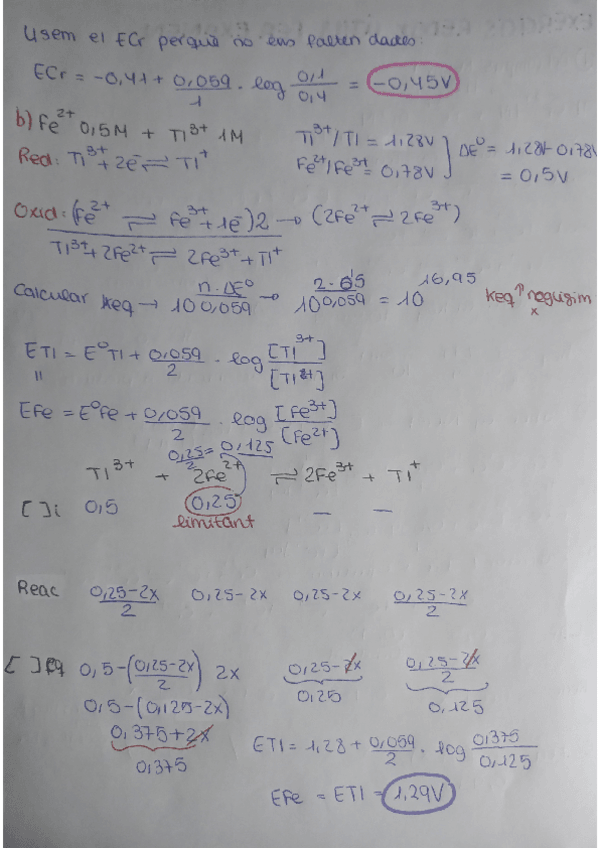 Usem el ECr perquè no ens falten dades:
ECr = -0,41 + 0,059/1 · log 0,1/0,4 = -0,45V
b) Fe²⁺ 0,5M + Tl³⁺ 1M
Tl³⁺/Tl = 1,28V
Fe²⁺/Fe³⁺ = 0,78V } ΔE° = 1,28 - 0,78V
= 0,5V
Red: Tl³⁺ + 2e⁻ ⇌ Tl⁺
Oxid: (Fe²⁺ ⇌ Fe³⁺ + 1e⁻)2 → (2Fe²⁺ ⇌ 2Fe³⁺)
Tl³⁺ + 2Fe²⁺ ⇌ 2Fe³⁺ + Tl⁺
Calcular Keq → 10^(n·ΔE°/0,059) → 10^(2·0,5/0,059) = 10^16,95 Keq↑
ETl = E°Tl + 0,059/2 · log [Tl³⁺]/[Tl⁺]
=
EFe = E°Fe + 0,059/2 · log [Fe³⁺]/[Fe²⁺]
0,25/2 = 0,125
Tl³⁺ + 2Fe²⁺ ⇌ 2Fe³⁺ + Tl⁺
[ ]i 0,5 0,25 — —
limitant
Reac (0,25-2x)/2 0,25-2x 0,25-2x (0,25-2x)/2
[ ]eq 0,5-((0,25-2x)/2) 2x 0,25-2x (0,25-2x)/2
0,5-(0,125-2x) 0,25 0,125
0,375+2x
0,375
ETl = 1,28 + 0,059/2 · log 0,375/0,125
EFe = ETl = 1,29V